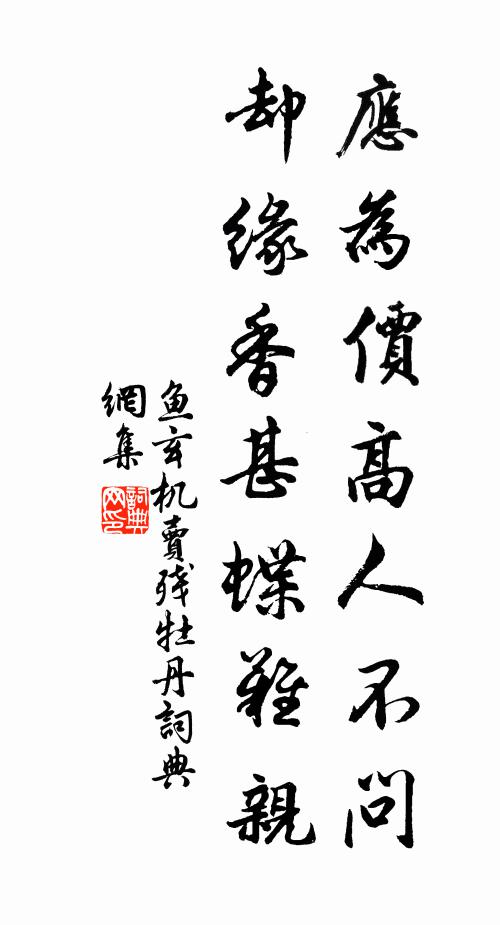 應為價高人不問
却緣香甚蝶難親
魚玄机賣殘牡丹詞典
網集
詞典
网印